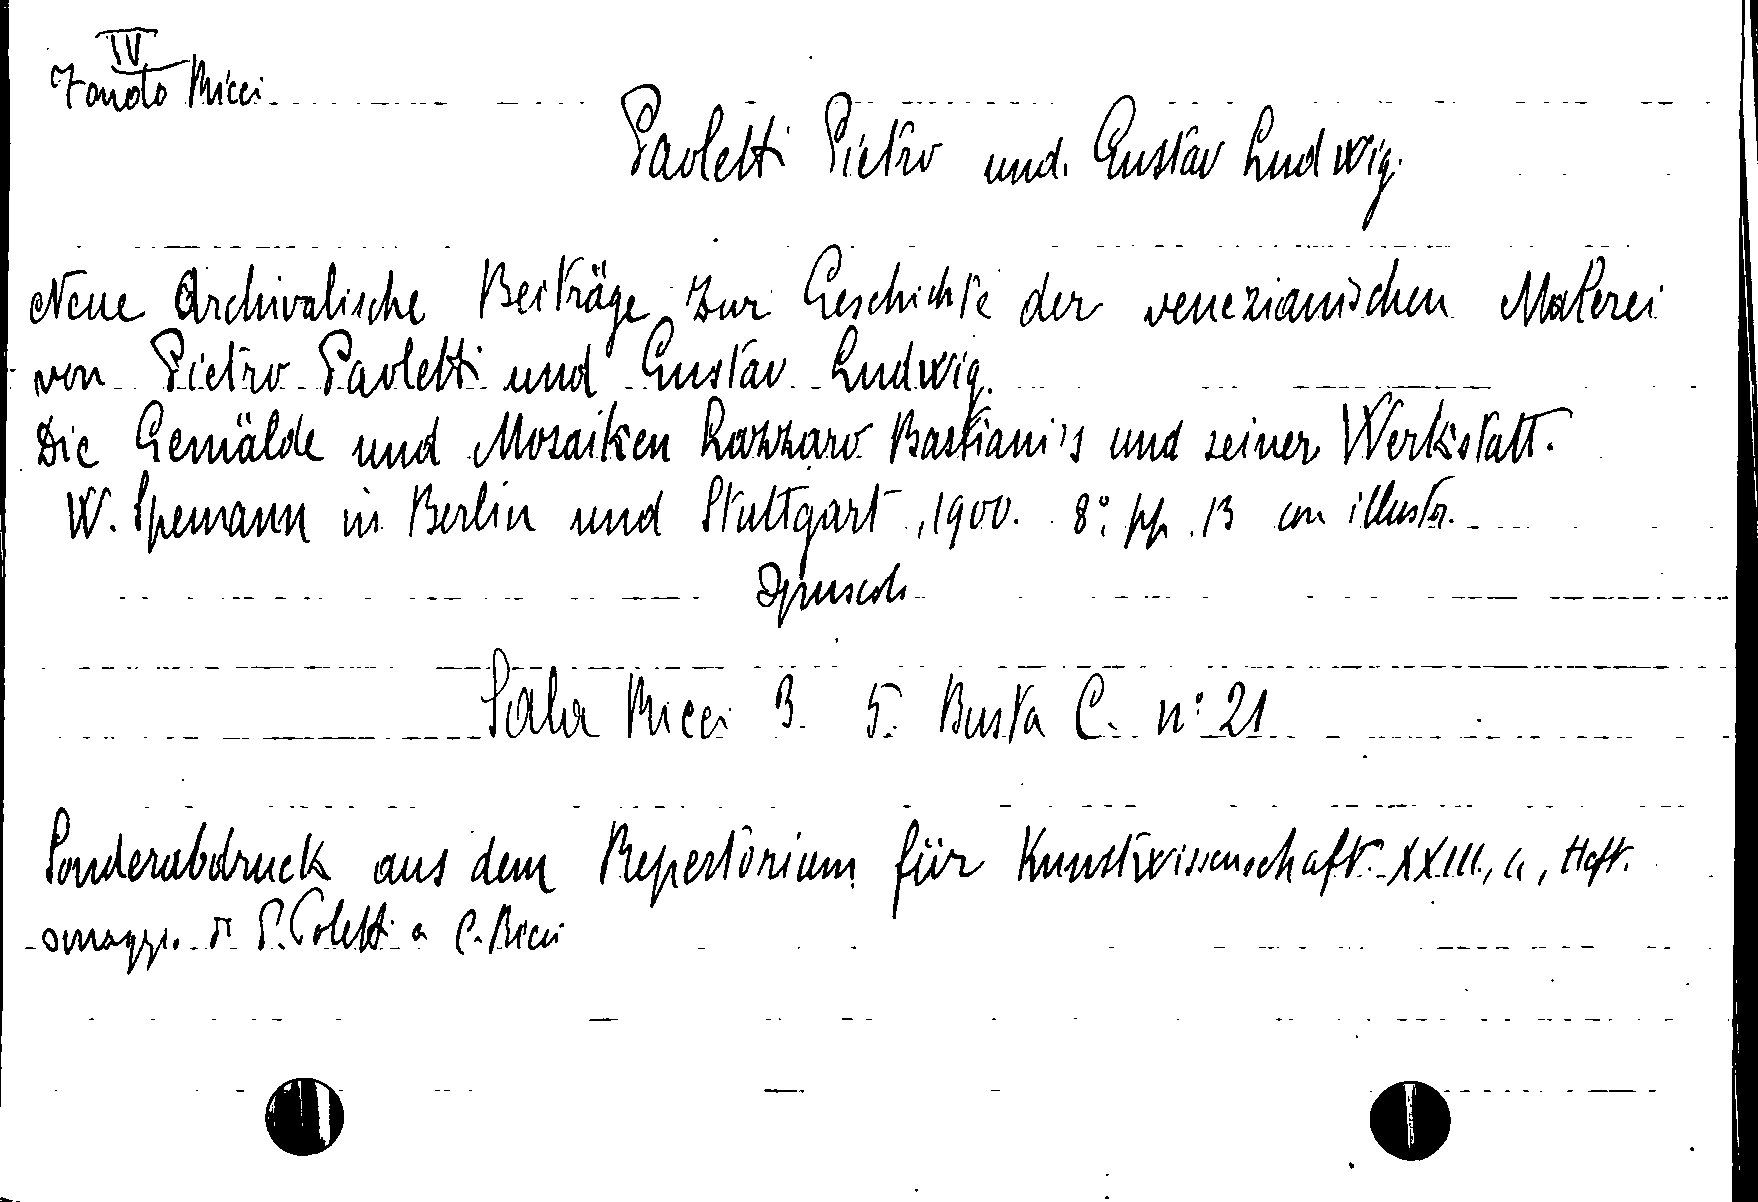 IV
Fondo Ricci
Paoletti Pietro und Gustav Ludwig.
Neue Archivalische Beiträge zur Geschichte der venezianischen Malerei
von Pietro Paoletti und Gustav Ludwig.
Die Gemälde und Mosaiken Lazzaro Bastiani's und seiner Werkstatt.
W. Spemann in Berlin und Stuttgart, 1900. 8° pp. 13 con illustr.
Opuscoli
Sala Ricci B. 5. Busta C. n° 21
Sonderabdruck aus dem Repertorium für Kunstwissenschaft. XXIII, Heft.
omaggio di P. Poletti a C. Ricci